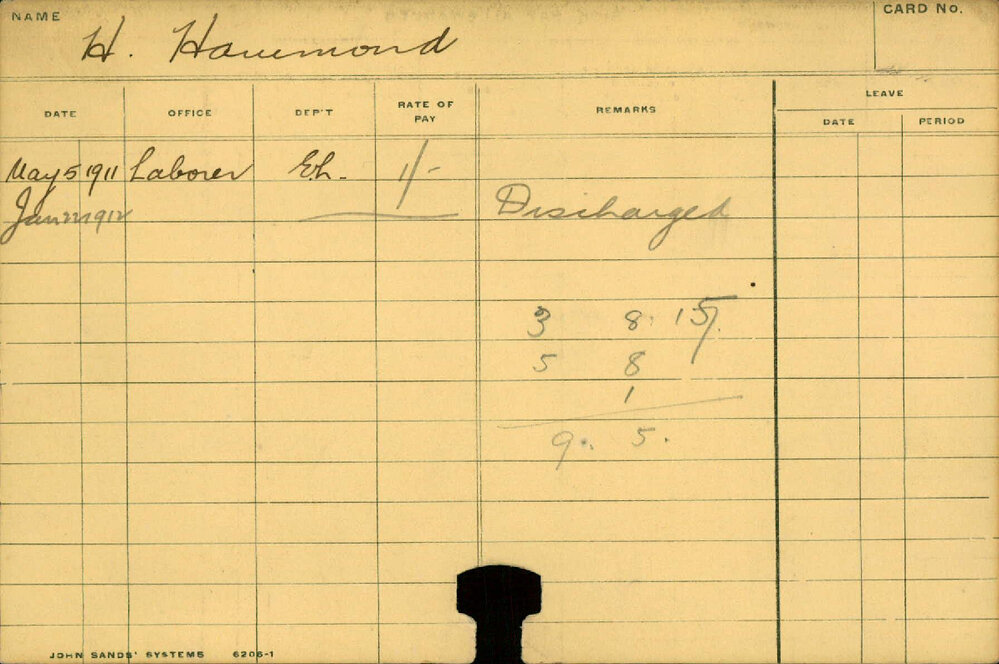 NAME H. Hammond CARD No.
DATE OFFICE DEP'T RATE OF PAY REMARKS LEAVE
DATE PERIOD
May 5 1911 Laborer Eh. 1/-
Jan 22 1912 Discharged
3 8. 15/.
5 8
1
9. 5.
JOHN SANDS' SYSTEMS 6206-1